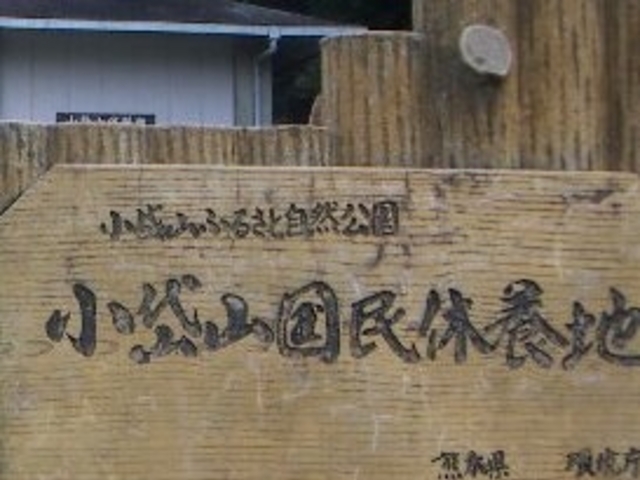 小岱山ふるさと自然公園
小岱山国民休養地
熊本県 環境庁